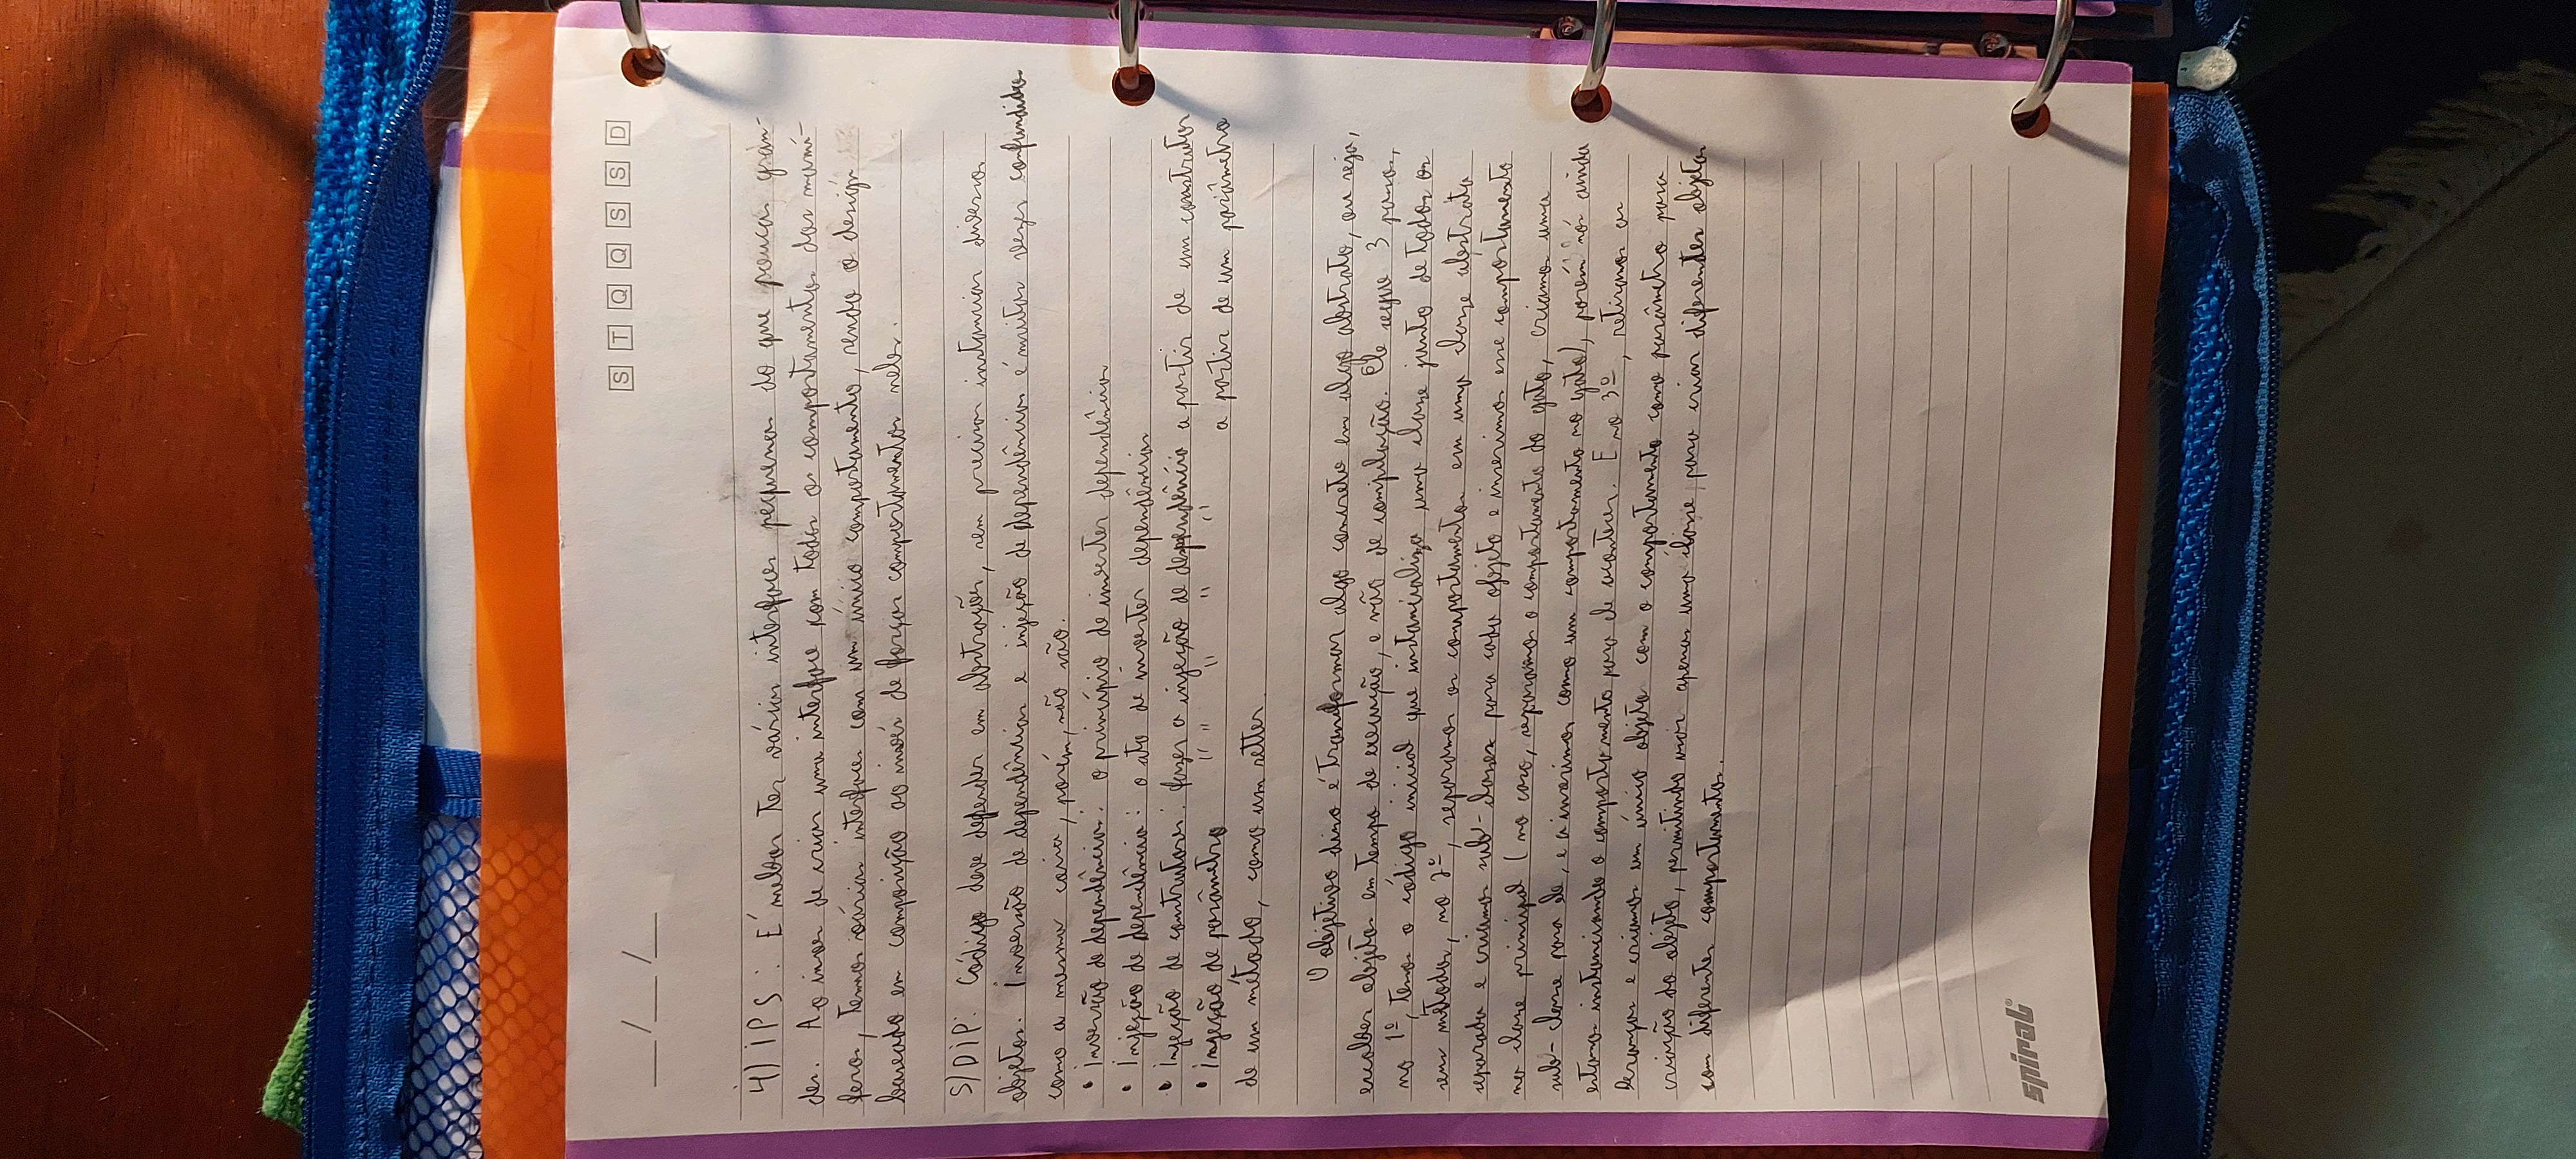 __/__/__
S T Q Q S S D
4) IPS: É melhor ter várias interfaces pequenas do que poucas gran-
des. Ao invés de criar uma interface com todos os comportamentos dos mamí-
feros, temos várias interfaces com um único comportamento, sendo o design
baseado em composição ao invés de forçar comportamentos neles.
5) DIP: Código deve depender em abstrações, sem precisar instanciar diversos
objetos. Inversão de dependências e injeção de dependências é muitas vezes confundidos
como a mesma coisa, porém, não são.
• Inversão de dependências: o princípio de inverter dependências
• Injeção de dependência: o ato de inverter dependências
• Injeção de construtores: fazer a injeção de dependência a partir de um construtor
• Injeção de parâmetro " " " " a partir de um parâmetro
de um método, como um setter.
O objetivo disso é transformar algo concreto em algo abstrato, ou seja,
escolher objetos em tempo de execução, e não de compilação. Ele segue 3 passos,
no 1º, temos o código inicial que instancializa uma classe junto de todos os
seus métodos, no 2º, separamos os comportamentos em uma classe abstrata
separada e criamos sub-classes para cada objeto e inserimos esse comportamento
na classe principal (no caso, separamos o comportamento do gato, criamos uma
sub-classe para ele, e a inserimos como um comportamento no gato), porém nós ainda
estamos instanciando o comportamento para ele acontecer. E no 3º, retiramos as
heranças e criamos um único objeto com o comportamento como parâmetro para
criação do objeto, permitindo usar apenas uma classe para criar diferentes objetos
com diferentes comportamentos.
spiral®